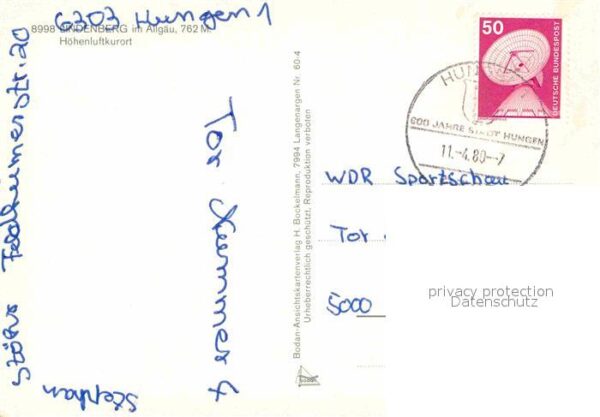 6303 Hungen 1
8998 LINDENBERG im Allgäu, 762 M.
Höhenluftkurort
Feldheimerstr. 20
Stephan
Tor Nummer 4
Bodan-Ansichtskartenverlag H. Bockelmann, 7994 Langenargen Nr. 60-4
Urheberrechtlich geschützt, Reproduktion verboten
50
DEUTSCHE BUNDESPOST
600 JAHRE STADT HUNGEN
11.-4.80--7
WDR Sportschau
Tor
5000
privacy protection
Datenschutz